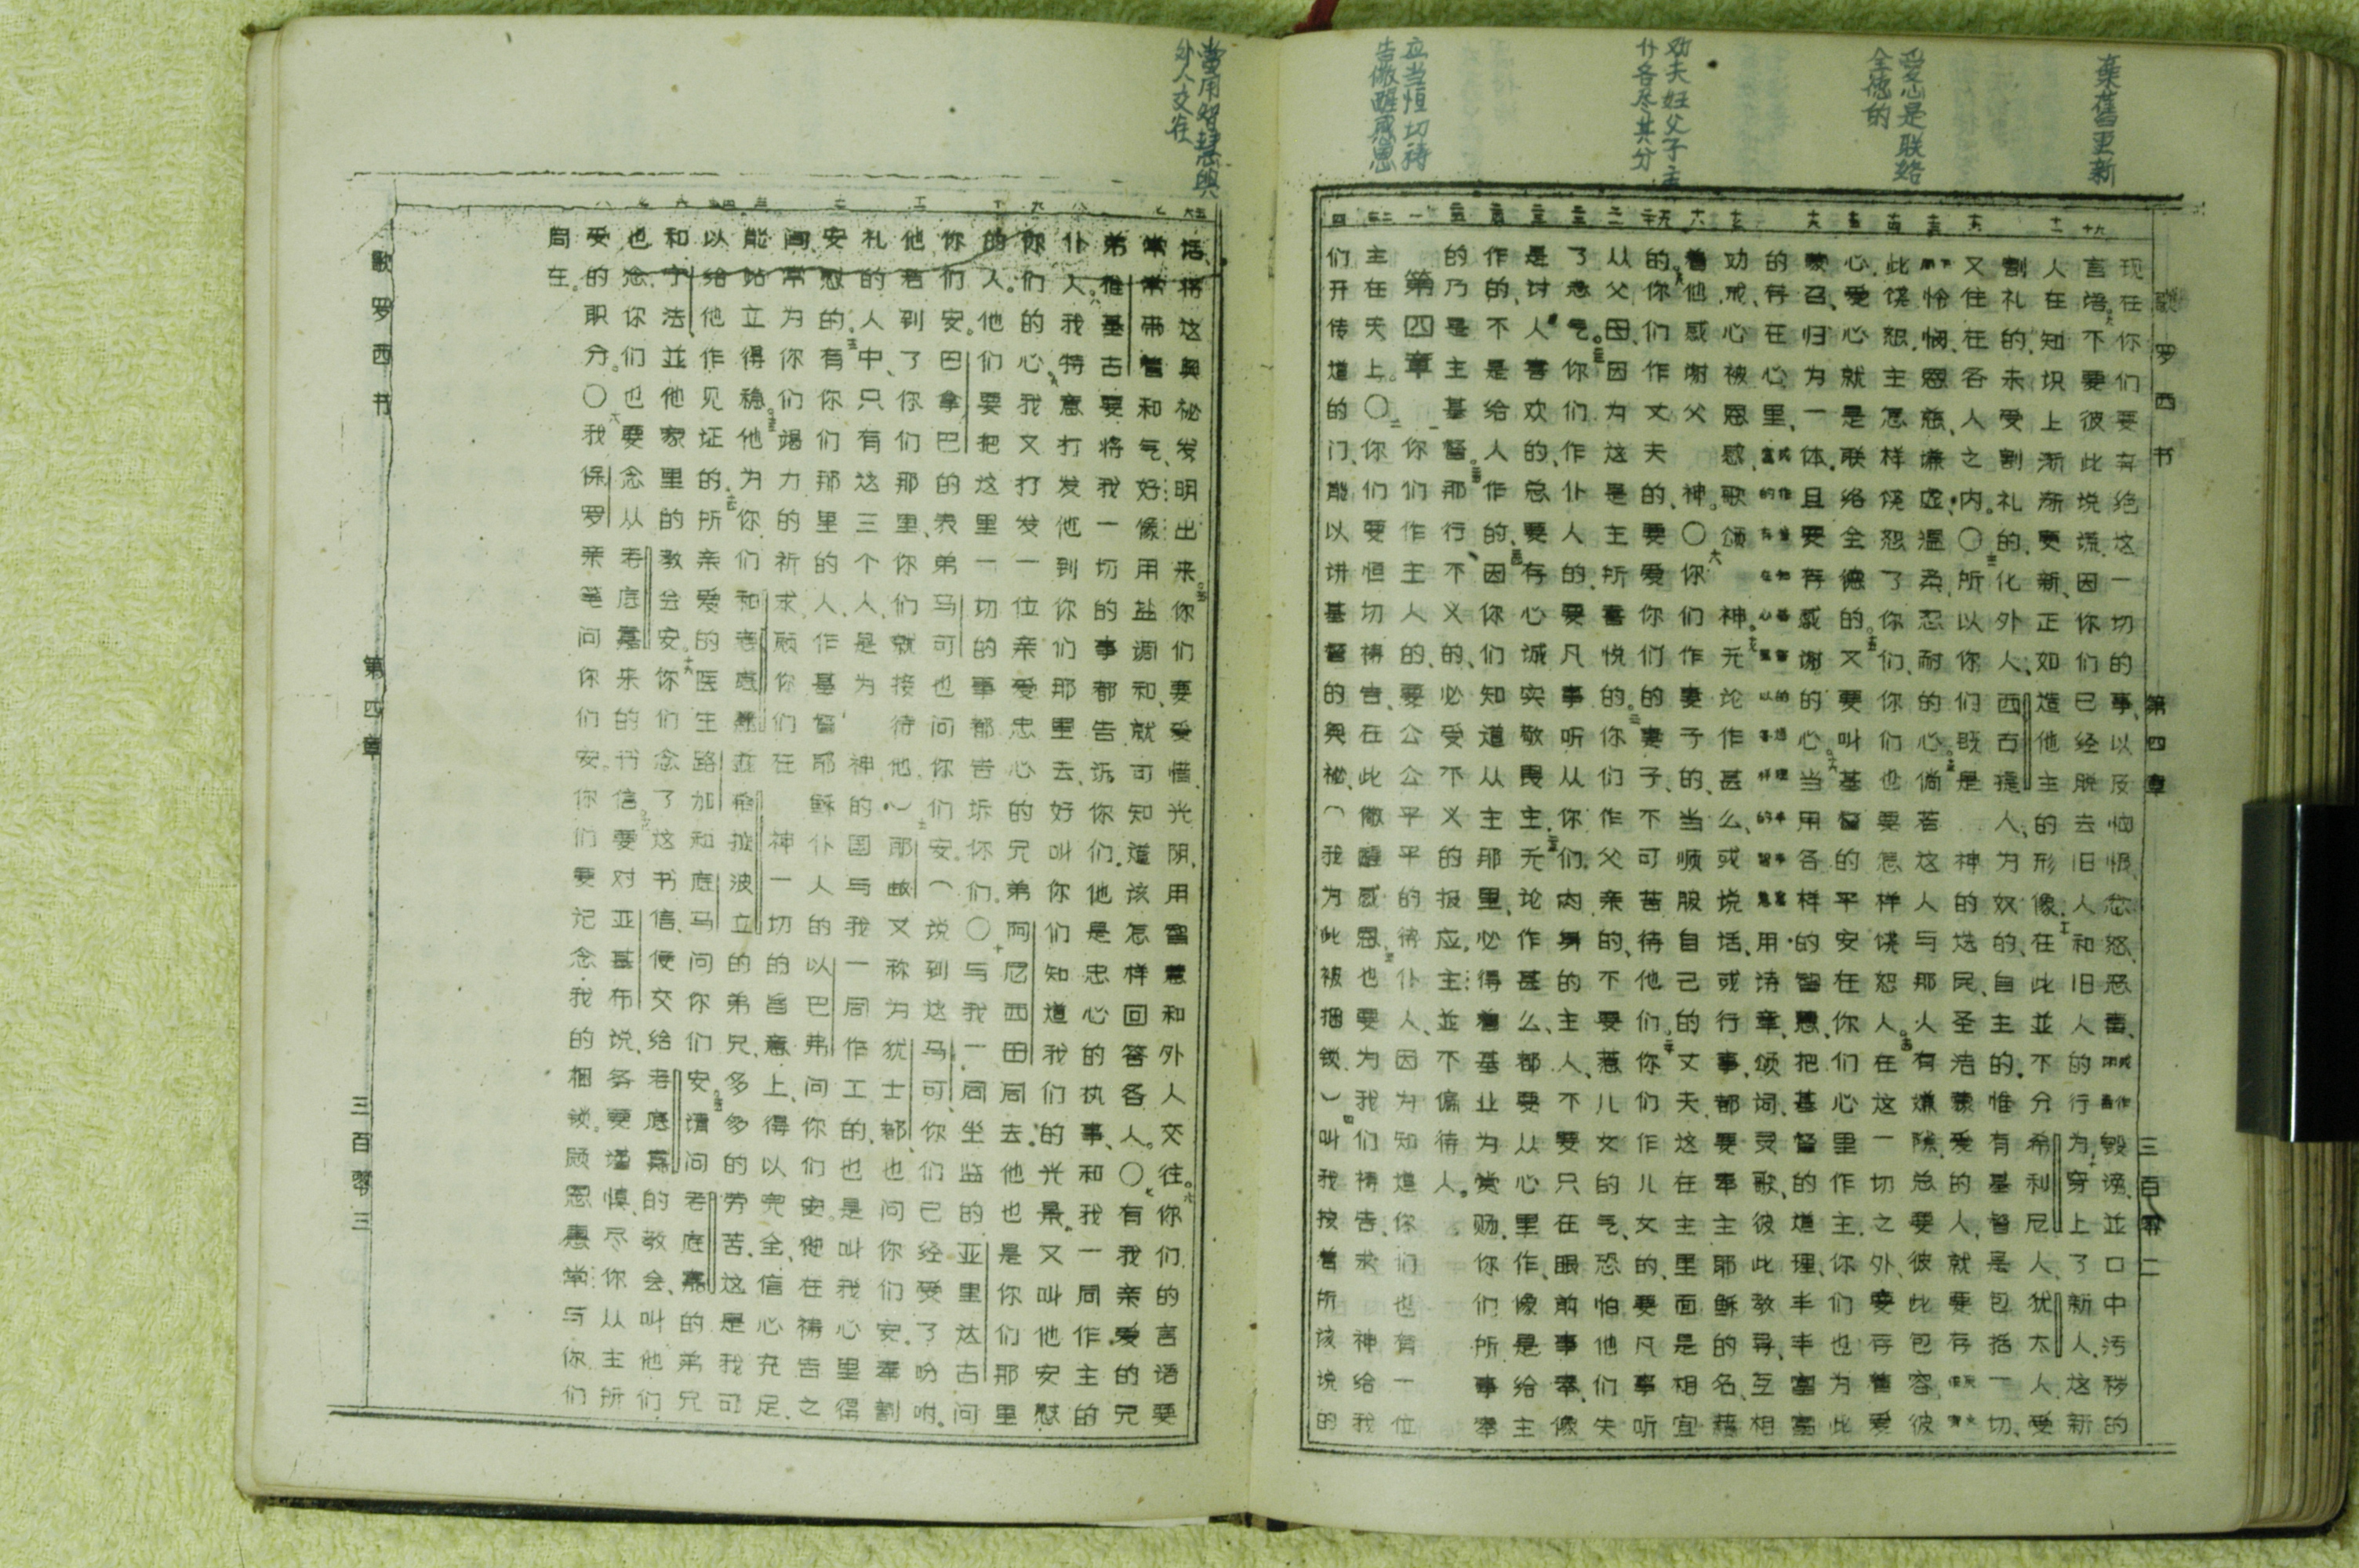 棄舊更新
爱心是联络
全德的
劝夫妇父子主
仆各尽其分
应当恒切祷
告儆醒感恩
歌罗西书 第四章 三百零二
现在你们要弃绝这一切的事、以及恼恨、忿怒、恶毒、毁谤、並口中污秽的
言语。九不要彼此说谎、因你们已经脱去旧人和旧人的行为、十穿上了新人、这新
人在知识上渐渐更新、正如造他主的形像、十一在此並不分希利尼人、犹太人、受
割礼的、未受割礼的、化外人、西古提人、为奴的、自主的、惟有基督是包括一切、
又住在各人之内。〇十二所以你们既是神的选民、圣洁蒙爱的人、就要存
怜悯、恩慈、谦虚、温柔、忍耐的心。十三倘若这人与那人有嫌隙、总要彼此包容、彼
此饶恕、主怎样饶恕了你们、你们也要怎样饶恕人。十四在这一切之外、要存着爱
心、爱心就是联络全德的。十五又要叫基督的平安在你们心里作主、你们也为此
蒙召、归为一体、且要存感谢的心。十六当用各样的智慧、把基督的道理、丰丰富富
的存在心里、用诗章、颂词、灵歌、彼此教导、互相
劝戒、心被恩感、歌颂神。十七无论作甚么、或说话、或行事、都要奉主耶稣的名、藉
着他感谢父神。〇十八你们作妻子的、当顺服自己的丈夫、这在主里面是相宜
的。十九你们作丈夫的、要爱你们的妻子、不可苦待他们。二十你们作儿女的、要凡事听
从父母、因为这是主所喜悦的。二一你们作父亲的、不要惹儿女的气、恐怕他们失
了志气。二二你们作仆人的、要凡事听从你们肉身的主人、不要只在眼前事奉、像
是讨人喜欢的、总要存心诚实敬畏主。二三无论作甚么、都要从心里作、像是给主
作的、不是给人作的、二四因你们知道从主那里、必得着基业为赏赐、你们所事奉
的乃是主基督。二五那行不义的、必受不义的报应、主並不偏待人。
第四章
一你们作主人的、要公公平平的待仆人、因为知道你们也有一位
主在天上。〇二你们要恒切祷告、在此儆醒感恩、三也要为我们祷告、求神给我
们开传道的门、能以讲基督的奥祕、(我为此被捆锁)四叫我按着所该说的
當用智慧與
外人交往
话、将这奥祕发明出来。五你们要爱惜光阴、用智慧和外人交往。六你们的言语要
常常带着和气、好像用盐调和、就可知道该怎样回答各人。〇七有我亲爱的兄
弟推基古要将我一切的事都告诉你们、他是忠心的执事、和我一同作主的
仆人。八我特意打发他到你们那里去、好叫你们知道我们的光景。又叫他安慰
你们的心、九我又打发一位亲爱忠心的兄弟、阿尼西母同去、他也是你们那里
的人。他们要把这里一切的事都告诉你们。〇十与我一同坐监的亚里达古问
你们安。巴拿巴的表弟马可也问你们安。(说到这马可、你们已经受了吩咐。
他若到了你们那里、你们就接待他。)十一耶数又称为犹士都、也问你们安。奉割
礼的人中、只有这三个人、是为神的国与我一同作工的、也是叫我心里得
安慰的。十二有你们那里的人、作基督耶稣仆人的以巴弗问你们安、他在祷告之
间常为你们竭力的祈求、愿你们在神一切的旨意上、得以完全、信心充足、
能站立得稳。十三他为你们和老底嘉並希拉波立的弟兄、多多的劳苦、这是我可
以给他作见证的。十四所亲爱的医生路加和底马问你们安。十五请问老底嘉的弟兄
和宁法、並他家里的教会安。十六你们念了这书信、便交给老底嘉的教会、叫他们
也念、你们也要念从老底嘉来的书信。十七要对亚基布说、务要谨慎尽你从主所
受的职分。〇十八我保罗亲笔问你们安。你们要记念我的捆锁。愿恩惠常与你们
同在。
歌罗西书 第四章 三百零三